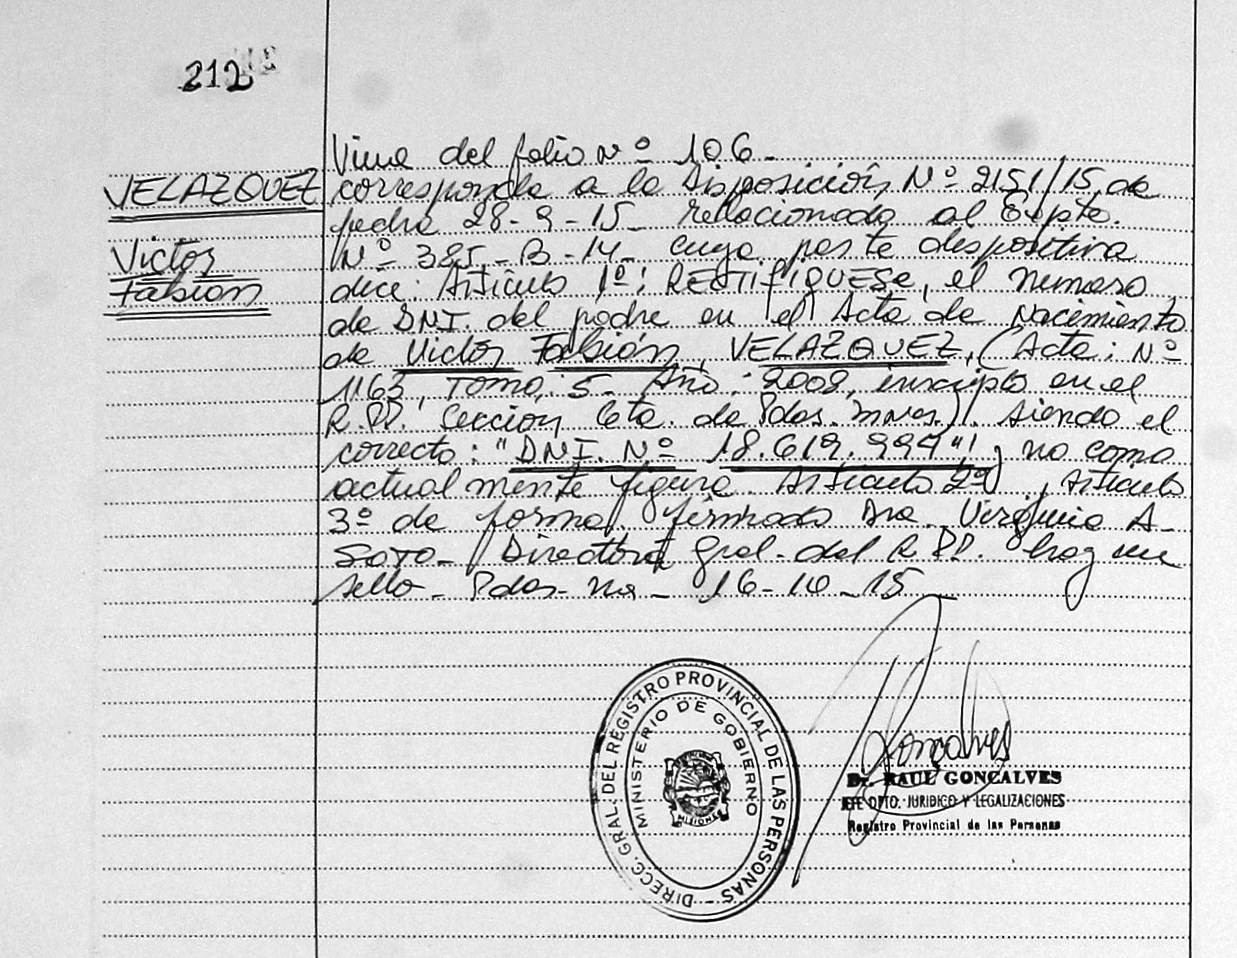 212
VELAZQUEZ
Victor
Fabián
Viene del folio Nº 106.-
corresponde a la Disposición Nº 2151/15, de
fecha 28-9-15- relacionada al Expte.
Nº 385-B-14- cuya parte dispositiva
dice: Artículo 1º: RECTIFIQUESE, el número
de DNI. del padre en el Acta de Nacimiento
de Victor Fabián, VELAZQUEZ, (Acta: Nº
1163, Tomo: 5- Año: 2008, inscripto en el
R.PP. Sección 6ta. de Pdas. Mnes). siendo el
correcto: "DNI. Nº 18.619.994"! y no como
actualmente figura. Artículo 2º, Artículo
3º de forma. firmado Dra. Virginia A-
SOTO- Directora Gral. del R.PP. hay un
sello- Pdas- Mnes- 16-10-15-
DIRECC. GRAL. DEL REGISTRO PROVINCIAL DE LAS PERSONAS -
MINISTERIO DE GOBIERNO
MISIONES
Gonçalves
Dr. RAUL GONCALVES
JEFE DPTO. JURIDICO Y LEGALIZACIONES
Registro Provincial de las Personas